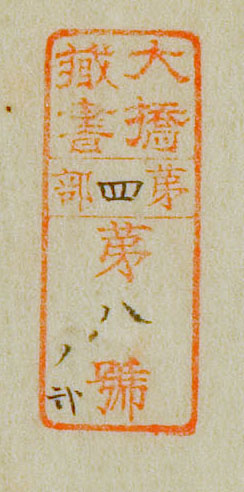 大橋
藏書
第四部
第八號
ノ